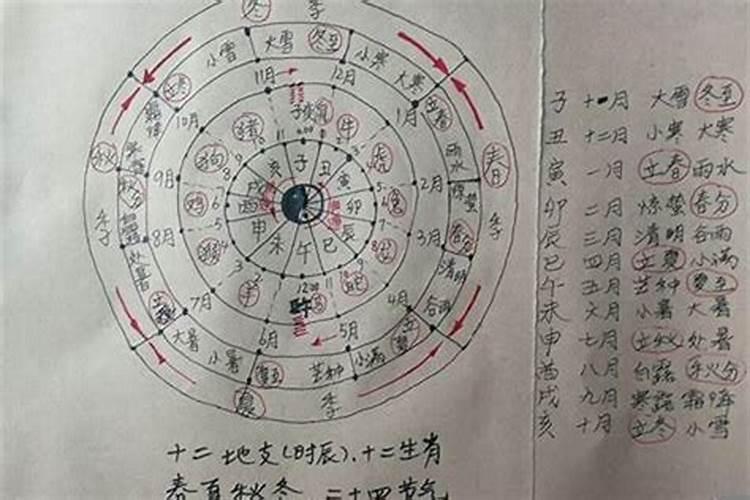 冬 季
小雪 大雪 冬至 小寒 大寒
立冬 11月 12月 立春
霜降 10月 子 1月 雨水
寒露 猪 鼠 牛 虎
秋 狗 亥 子 丑 春
秋分 9月 戌 寅 2月 惊蛰
季 鸡 酉 卯 兔 季
白露 8月 申 辰 3月 春分
处暑 猴 未 午 巳 龙 清明
立秋 7月 羊 12:00 午 马 蛇 4月 谷雨
大暑 6月 5月 立夏
小暑 夏至 芒种 小满
夏 季
子 十一月 大雪 冬至
丑 十二月 小寒 大寒
寅 一月 立春 雨水
卯 二月 惊蛰 春分
辰 三月 清明 谷雨
巳 四月 立夏 小满
午 五月 芒种 夏至
未 六月 小暑 大暑
申 七月 立秋 处暑
酉 八月 白露 秋分
戌 九月 寒露 霜降
亥 十月 立冬 小雪
十二地支(时辰)、十二生肖
春夏秋冬 二十四节气